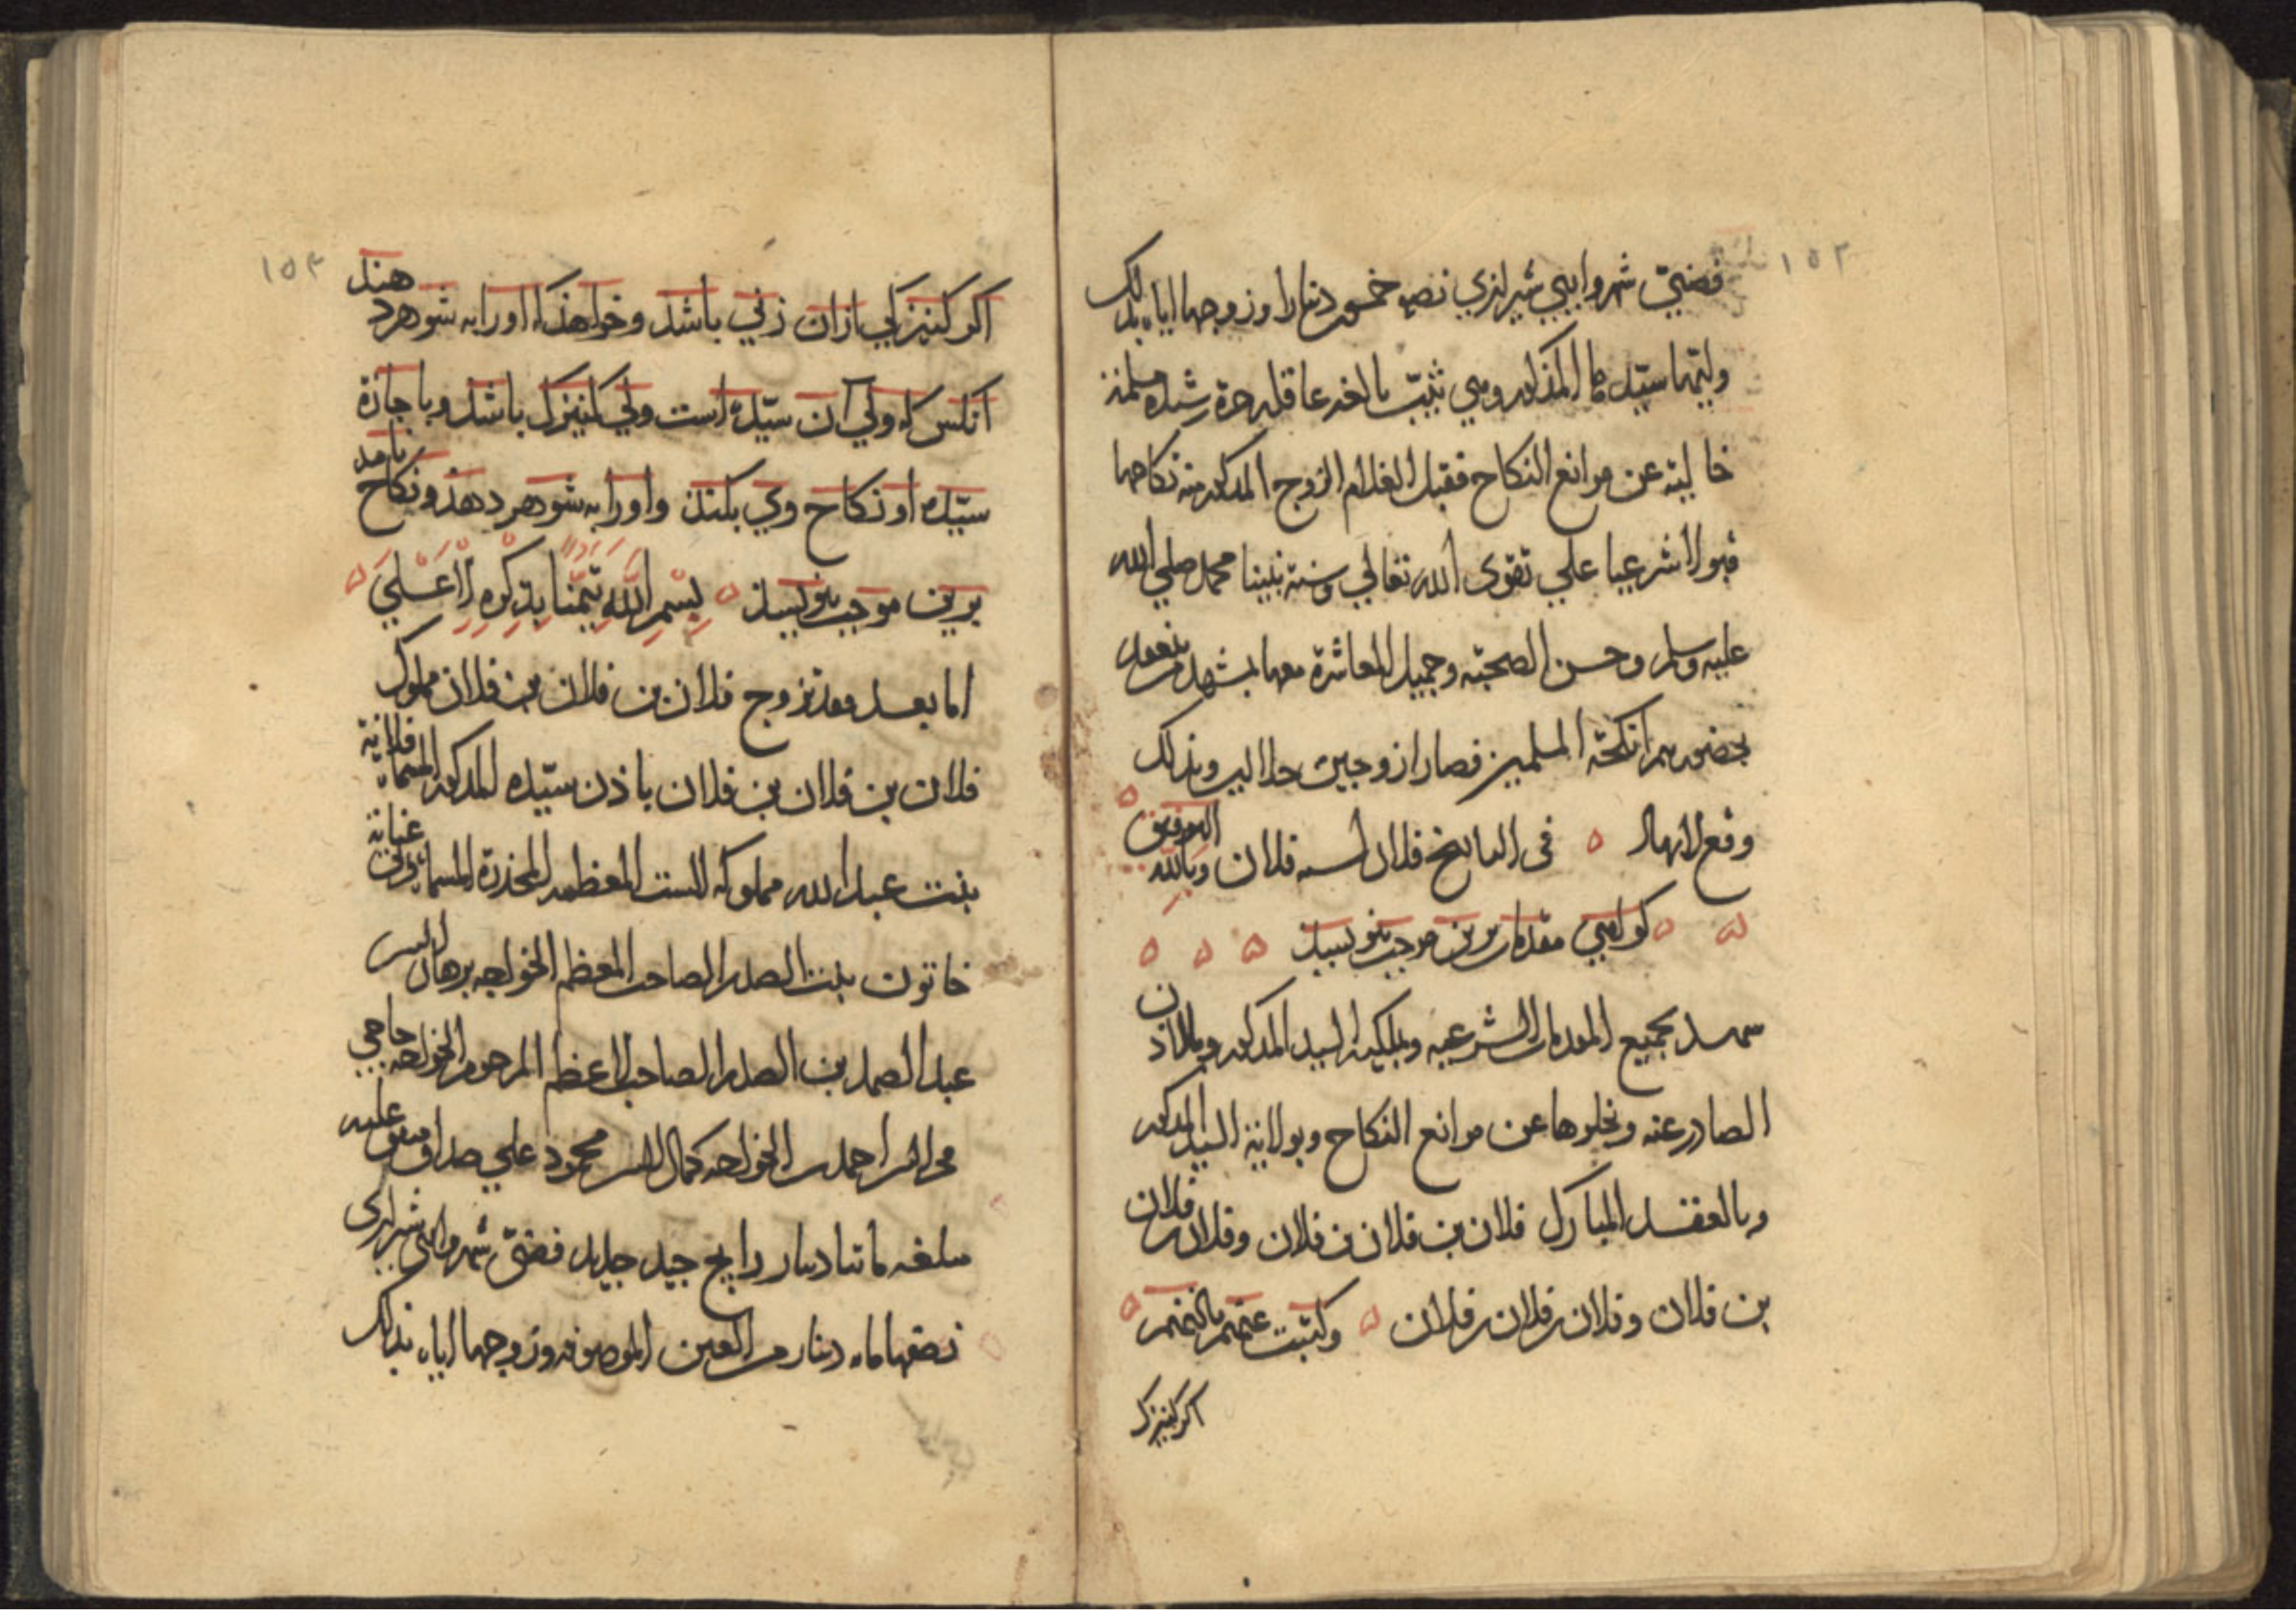 ١٥٢
فضيّ شهروايي شيرازي نصفه خمسون دينارا وزوجها اياه بذلك
وليّها سيّدها المذكور وهي ثيّب بالغه عاقله حرة رشيده مسلمة
خالية عن موانع النكاح فقبل الغلام الزوج المذكور منه نكاحها
قبولا شرعيا علي تقوى الله تعالي وسنة نبينا محمد صلي الله
عليه وسلم وحسن الصحبة وجميل المعاشرة معها بمشهد من ينعقد
بحضورهم انكحة المسلمين فصارا زوجين حلالين وبذلك
وقع الاشهاد في التاريخ فلان لسنه فلان وبالله التوفيق
كواهي مقدمات برين موجب بنويسد
شهد بجميع المقدمات الشرعيه وبملكية السيد المذكور وبالاذن
الصادر عنه وبخلوها عن موانع النكاح وبولاية السيد المذكور
وبالعقد المبارك فلان بن فلان بن فلان وفلان بن فلان
بن فلان وفلان بن فلان بن فلان وكتبت عنهم باذنهم
اكر كنيزك
١٥٣
اكر كنيزكي ازان زني باشد وخواهد كه اورا به شوهر دهند
انكس كه ولي آن سيّده است ولي كنيزك باشد وباجازة
سيّده او نكاح وي بكند واورا به شوهر دهد ونكاح نامه
برين موجب بنويسد بِسْمِ اللَّهِ تَيَمُّنًا بِذِكْرِهِ الْأَعْلَى
اما بعد فقد تزوج فلان بن فلان بن فلان مملوك
فلان بن فلان بن فلان باذن سيّده المذكور المسماة فلانية
بنت عبد الله مملوكه الست المعظمه المخدرة المسماة
خاتون بنت الصدر الصاحب المعظم الخواجه برهان الدين
عبد الصمد بن الصدر الصاحب الاعظم المرحوم الخواجه حاجي
احمد بن الخواجه كمال الدين محمود علي صداق متفق عليه
مبلغه مائتا دينار رايج جيد جديد فضيّ شيرازي
نصفها مائة دينار من العين الموصوفه وزوجها اياه بذلك